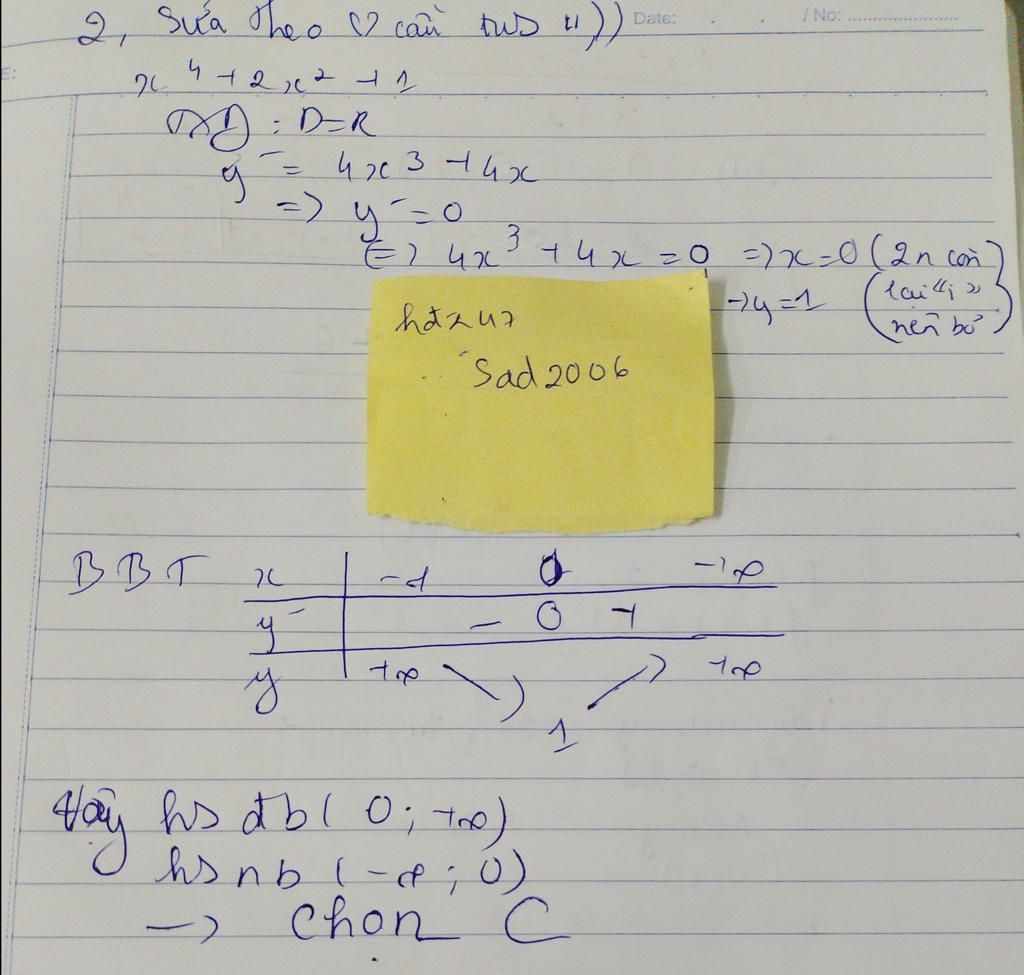 Date: . . / No: ....................
2, Sửa theo
x⁴ + 2x² + 1
TXĐ : D=R
y' = 4x³ + 4x
=> y' = 0
<=> 4x³ + 4x = 0 => x=0 (2n còn
lại "i"
nên bỏ)
-> y = 1
hdx47
Sad2006
BBT x -∞ 0 +∞
y' - 0 +
y +∞ 1 +∞
Vậy hs đb ( 0 ; +∞)
hs nb ( -∞ ; 0)
-> Chọn C